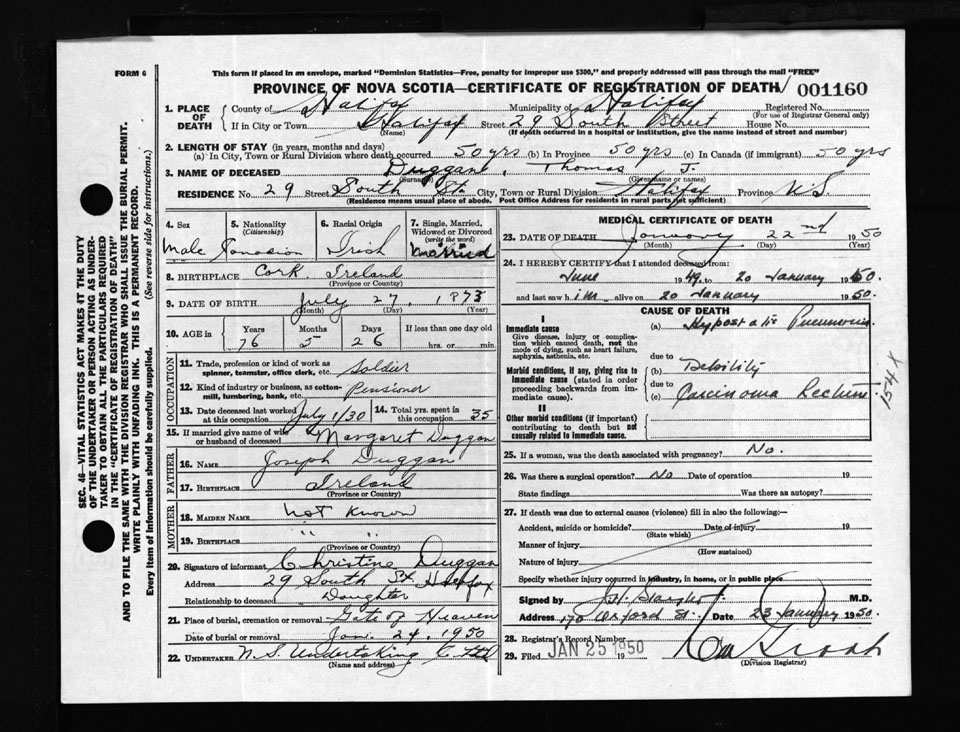 FORM 6
This form if placed in an envelope, marked "Dominion Statistics—Free, penalty for improper use $300," and properly addressed will pass through the mail "FREE"
PROVINCE OF NOVA SCOTIA—CERTIFICATE OF REGISTRATION OF DEATH
001160
1. PLACE OF DEATH
County of Halifax Municipality of Halifax Registered No.
(For use of Registrar General only)
If in City or Town Halifax Street 29 South Street House No.
(Name) (If death occurred in a hospital or institution, give the name instead of street and number)
2. LENGTH OF STAY (in years, months and days)
(a) In City, Town or Rural Division where death occurred 50 yrs (b) In Province 50 yrs (c) In Canada (if immigrant) 50 yrs
3. NAME OF DECEASED Duggan, Thomas J.
(Surname) (Given name or names)
RESIDENCE No. 29 Street South St. City, Town or Rural Division Halifax Province N.S.
(Residence means usual place of abode. Post Office Address for residents in rural parts not sufficient)
4. Sex Male
5. Nationality (Citizenship) Canadian
6. Racial Origin Irish
7. Single, Married, Widowed or Divorced (write the word) Married
8. BIRTHPLACE Cork, Ireland
(Province or Country)
9. DATE OF BIRTH July 27, 1873
(Month) (Day) (Year)
10. AGE in Years Months Days If less than one day old
76 5 26 hrs. or min.
OCCUPATION
11. Trade, profession or kind of work as spinner, teamster, office clerk, etc. Soldier
12. Kind of industry or business, as cotton-mill, lumbering, bank, etc. Pensioner
13. Date deceased last worked at this occupation July 1/30
14. Total yrs. spent in this occupation 35
15. If married give name of wife or husband of deceased Margaret Duggan
FATHER
16. NAME Joseph Duggan
17. BIRTHPLACE Ireland
(Province or Country)
MOTHER
18. MAIDEN NAME Not Known
19. BIRTHPLACE " "
(Province or Country)
20. Signature of informant Christine Duggan
Address 29 South St. Halifax
Relationship to deceased Daughter
21. Place of burial, cremation or removal Gate of Heaven
Date of burial or removal Jan. 24, 1950
22. UNDERTAKER N.S. Undertaking C. Ltd
(Name and address)
MEDICAL CERTIFICATE OF DEATH
23. DATE OF DEATH January 22nd 1950
(Month) (Day) (Year)
24. I HEREBY CERTIFY that I attended deceased from:
June 1949, to 20 January 1950.
and last saw him alive on 20 January 1950.
CAUSE OF DEATH
I
Immediate cause
Give disease, injury or complication which caused death, not the mode of dying, such as heart failure, asphyxia, asthenia, etc.
(a) Hypostatic Pneumonia
due to
Morbid conditions, if any, giving rise to immediate cause (stated in order proceeding backwards from immediate cause).
(b) Debility
due to
(c) Carcinoma Rectum
154 X
II
Other morbid conditions (if important) contributing to death but not causally related to immediate cause.
25. If a woman, was the death associated with pregnancy? No.
26. Was there a surgical operation? No Date of operation 19
State findings Was there an autopsy?
27. If death was due to external causes (violence) fill in also the following:—
Accident, suicide or homicide? Date of injury 19
(State which)
Manner of injury
(How sustained)
Nature of injury
Specify whether injury occurred in industry, in home, or in public place
Signed by M.D.
Address 170 Oxford St. Date 23 January 1950.
28. Registrar's Record Number
29. Filed JAN 25 1950 19
(Division Registrar)
SEC. 46—VITAL STATISTICS ACT MAKES IT THE DUTY
OF THE UNDERTAKER OR PERSON ACTING AS UNDER-
TAKER TO OBTAIN ALL THE PARTICULARS REQUIRED
IN THE "CERTIFICATE OF REGISTRATION OF DEATH"
AND TO FILE THE SAME WITH THE DIVISION REGISTRAR WHO SHALL ISSUE THE BURIAL PERMIT.
WRITE PLAINLY WITH UNFADING INK. THIS IS A PERMANENT RECORD.
Every item of information should be carefully supplied. (See reverse side for instructions.)